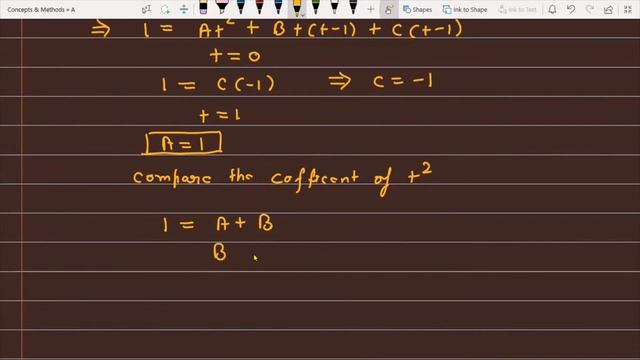 Concepts & Methods + A
Ink to Shape
Ink to Text
⇒ 1 = At² + Bt(t-1) + C(t-1)
t=0
1 = C(-1) ⇒ C = -1
t=1
A=1
compare the cofficent of t²
1 = A + B
B